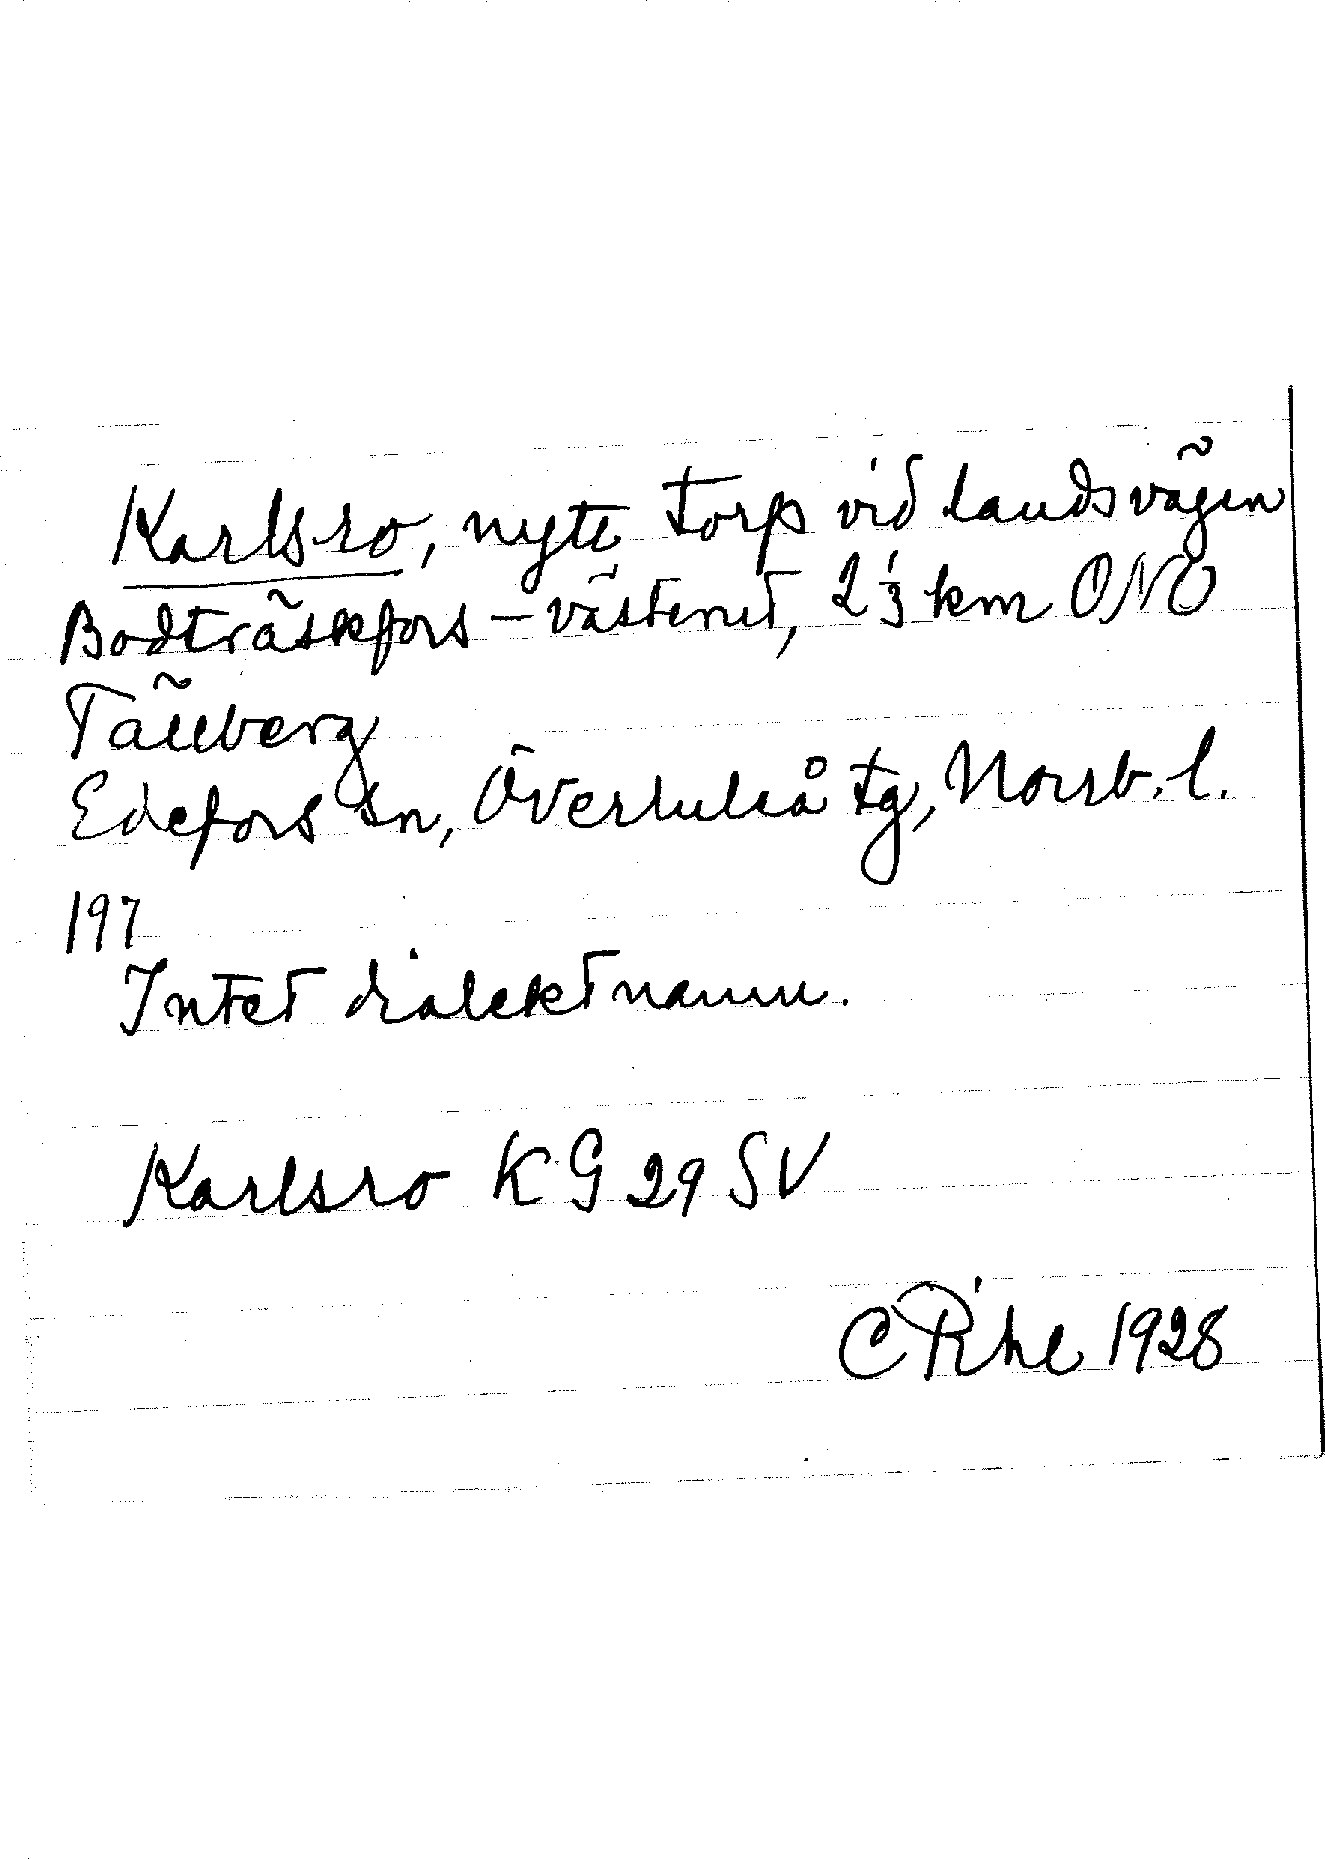 Karlsro, nytt torp vid landsvägen
Bodträskfors – västerut, 2 1/3 km ONO
Tällberg
Edefors sn, Överluleå tg, Norrb. l.
197
Intet dialektnamn.
Karlsro KG 29 SV
C Rihe 1928